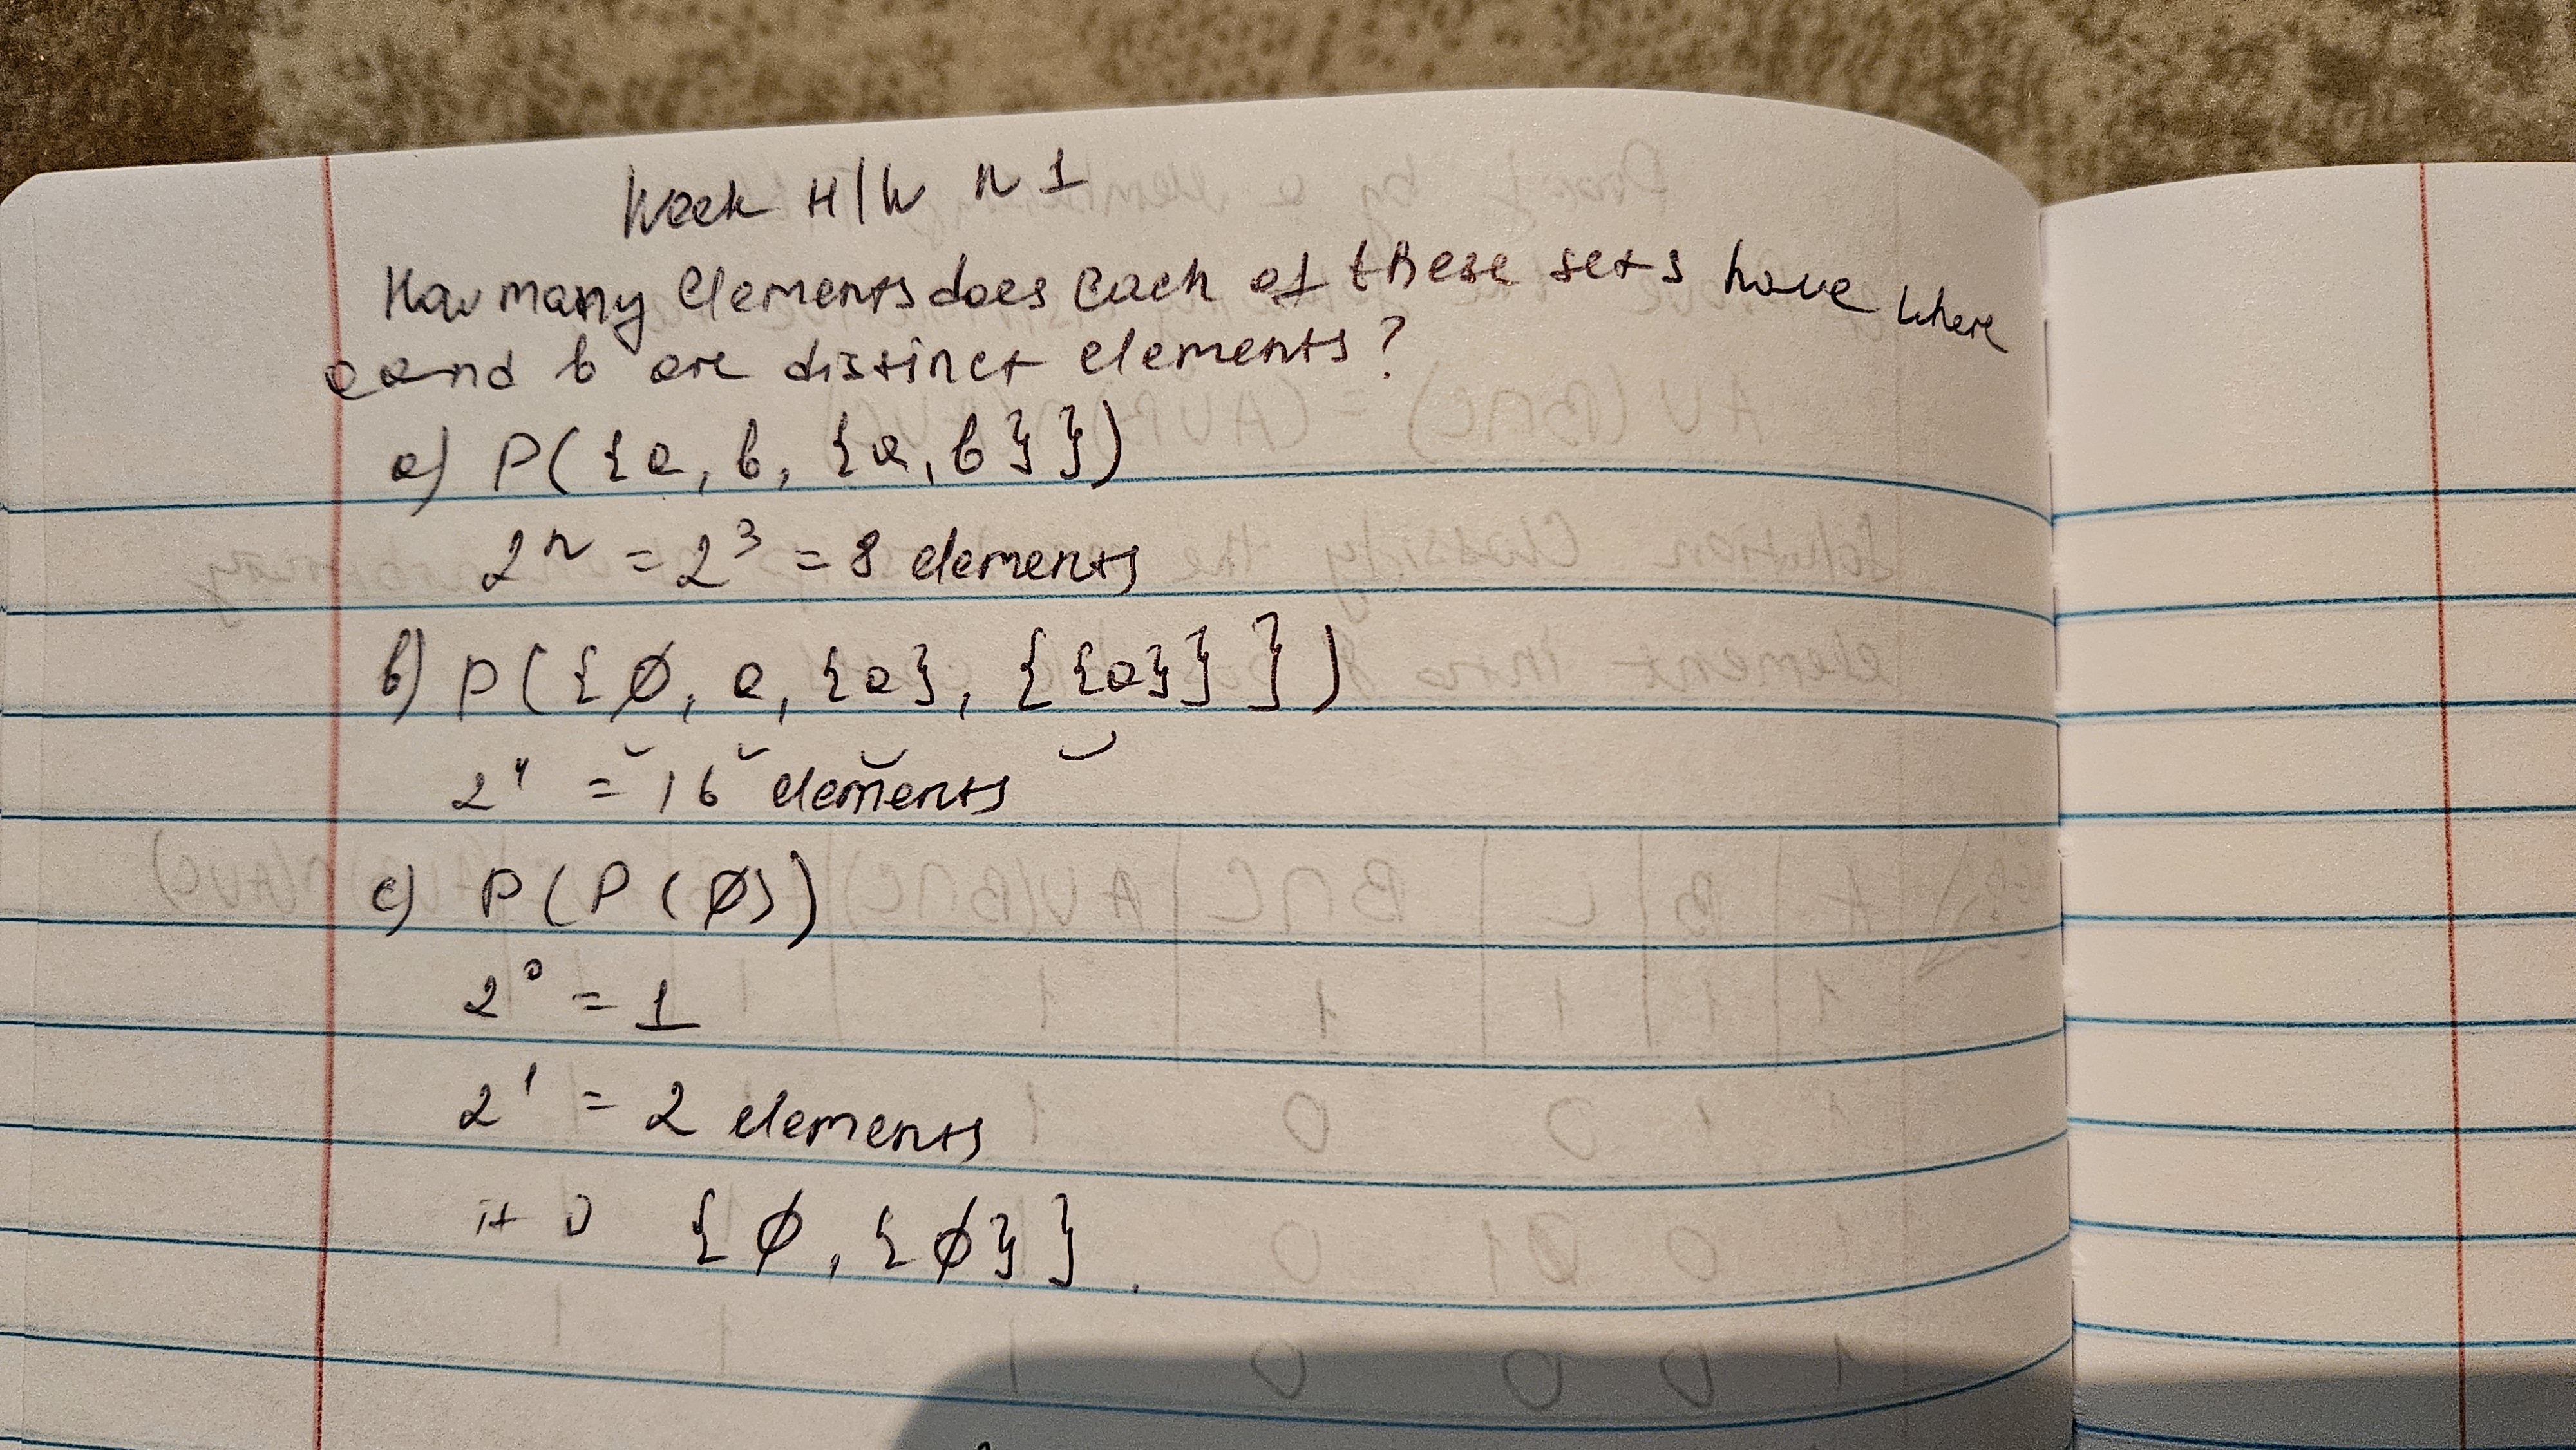 Week H/W N 1
How many elements does each of these sets have where
a and b are distinct elements?
a) P({a, b, {a, b}})
2n = 2³ = 8 elements
b) P({∅, a, {a}, {{a}}})
2⁴ = 16 elements
c) P(P(∅))
2⁰ = 1
2¹ = 2 elements
{∅, {∅}}